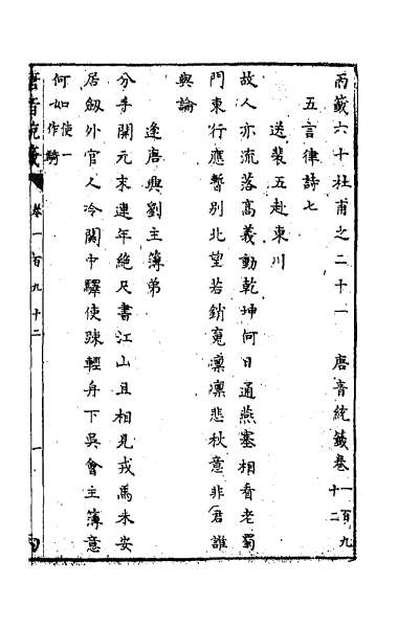 丙籖六十杜甫之二十一　唐音統籖卷一百九十二
五言律詩七
送裴五赴東川
故人亦流落高義動乾坤何日通燕塞相看老蜀
門東行應暫別北望若銷䰟凛凛悲秋意非君誰
與論
逢唐興劉主簿弟
分手開元末連年絶尺書江山且相見戎馬未安
居劔外官人冷關中驛使踈輕舟下吳會主簿意
何如使一作騎
唐音統籖
卷一百九十二
一